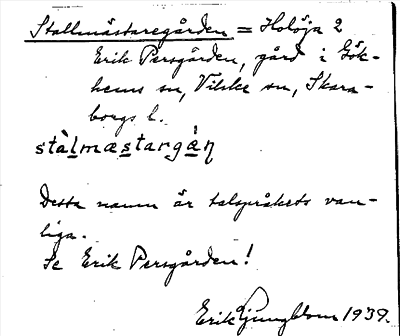 Stallmästaregården = Holöja 2
Erik Persgården, gård i Gök-
hems sn, Vilske sn, Skara-
borgs l.
stàlmæstargá̀ɳ
Detta namn är talspråkets van-
liga.
Se Erik Persgården!
Erik Ljungblom 1939.